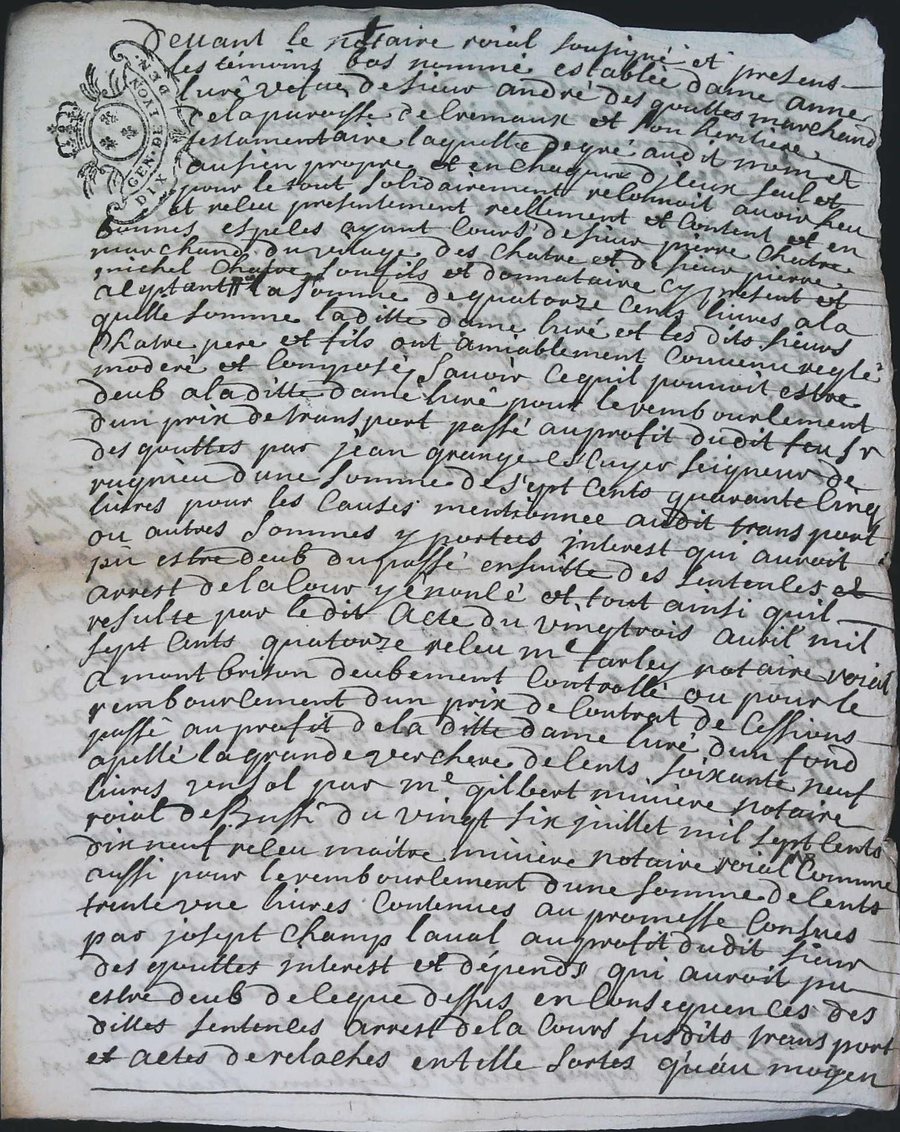 GEN. DE LYON
DIX DEN.
Devant le notaire roial sousigné et presens
les temoins bas nommé establie dame anne
Curé vefue de sieur andré des gouttes marchand
de la paroisse de Cremaux et son heritiere
testamentaire laquelle de gré audit nom et
au sien propre et en chaqun d'yeux seul et
pour le tout solidairement reconnoit avoir heu
et receu presentement reellement et content et en
bonnes especes ayant Cours de sieur pierre Chatre
marchand du vilage des Chatre et de sieur pierre
michel Chatre son fils et donnataire cy present et
aceptant la somme de quatorze cents livres a la
quelle somme la ditte dame Curé et les dits sieurs
Chatre pere et fils ont amiablement convenu reglé
moderé et composé scavoir ce quil pouvoit estre
deub a la ditte dame Curé pour le rembourcement
dun prix de transport passé au profit du dit feu sr
des gouttes par jean grange escuyer seigneur de
rugnieu dune somme de sept cents quarante cinq
livres pour les causes mentionnee audit transport
ou autres sommes y portees interest qui auroit
pu estre deub du passé ensuitte des sentences et
arrest de la Cour y énoncé et tout ainsi quil
resulte par le dit Acte du vingtrois avril mil
sept cents quatorze receu me farley notaire roial
a montbrison deubement Controllé ou pour le
rembourcement dun prix de Contrat de Cessions
passé au profit de la ditte dame Curé dun fond
apellé la grande verchere de cents soixante neuf
livres zen sol par me gilbert miniere notaire
roial de Bussi du vingt six juillet mil sept cents
dix neuf receu maitre miniere notaire roial Comme
aussi pour le rembourcement dune somme de cents
trente une livres contenues au promesse Consues
par josept Champ laval au profit du dit sieur
des gouttes interest et dépends qui auroit pu
estre deub de ceque dessus en Consequences des
dittes sentences arrest de la Cours susdits transport
et actes de relaches entille sortes qu'au moyen